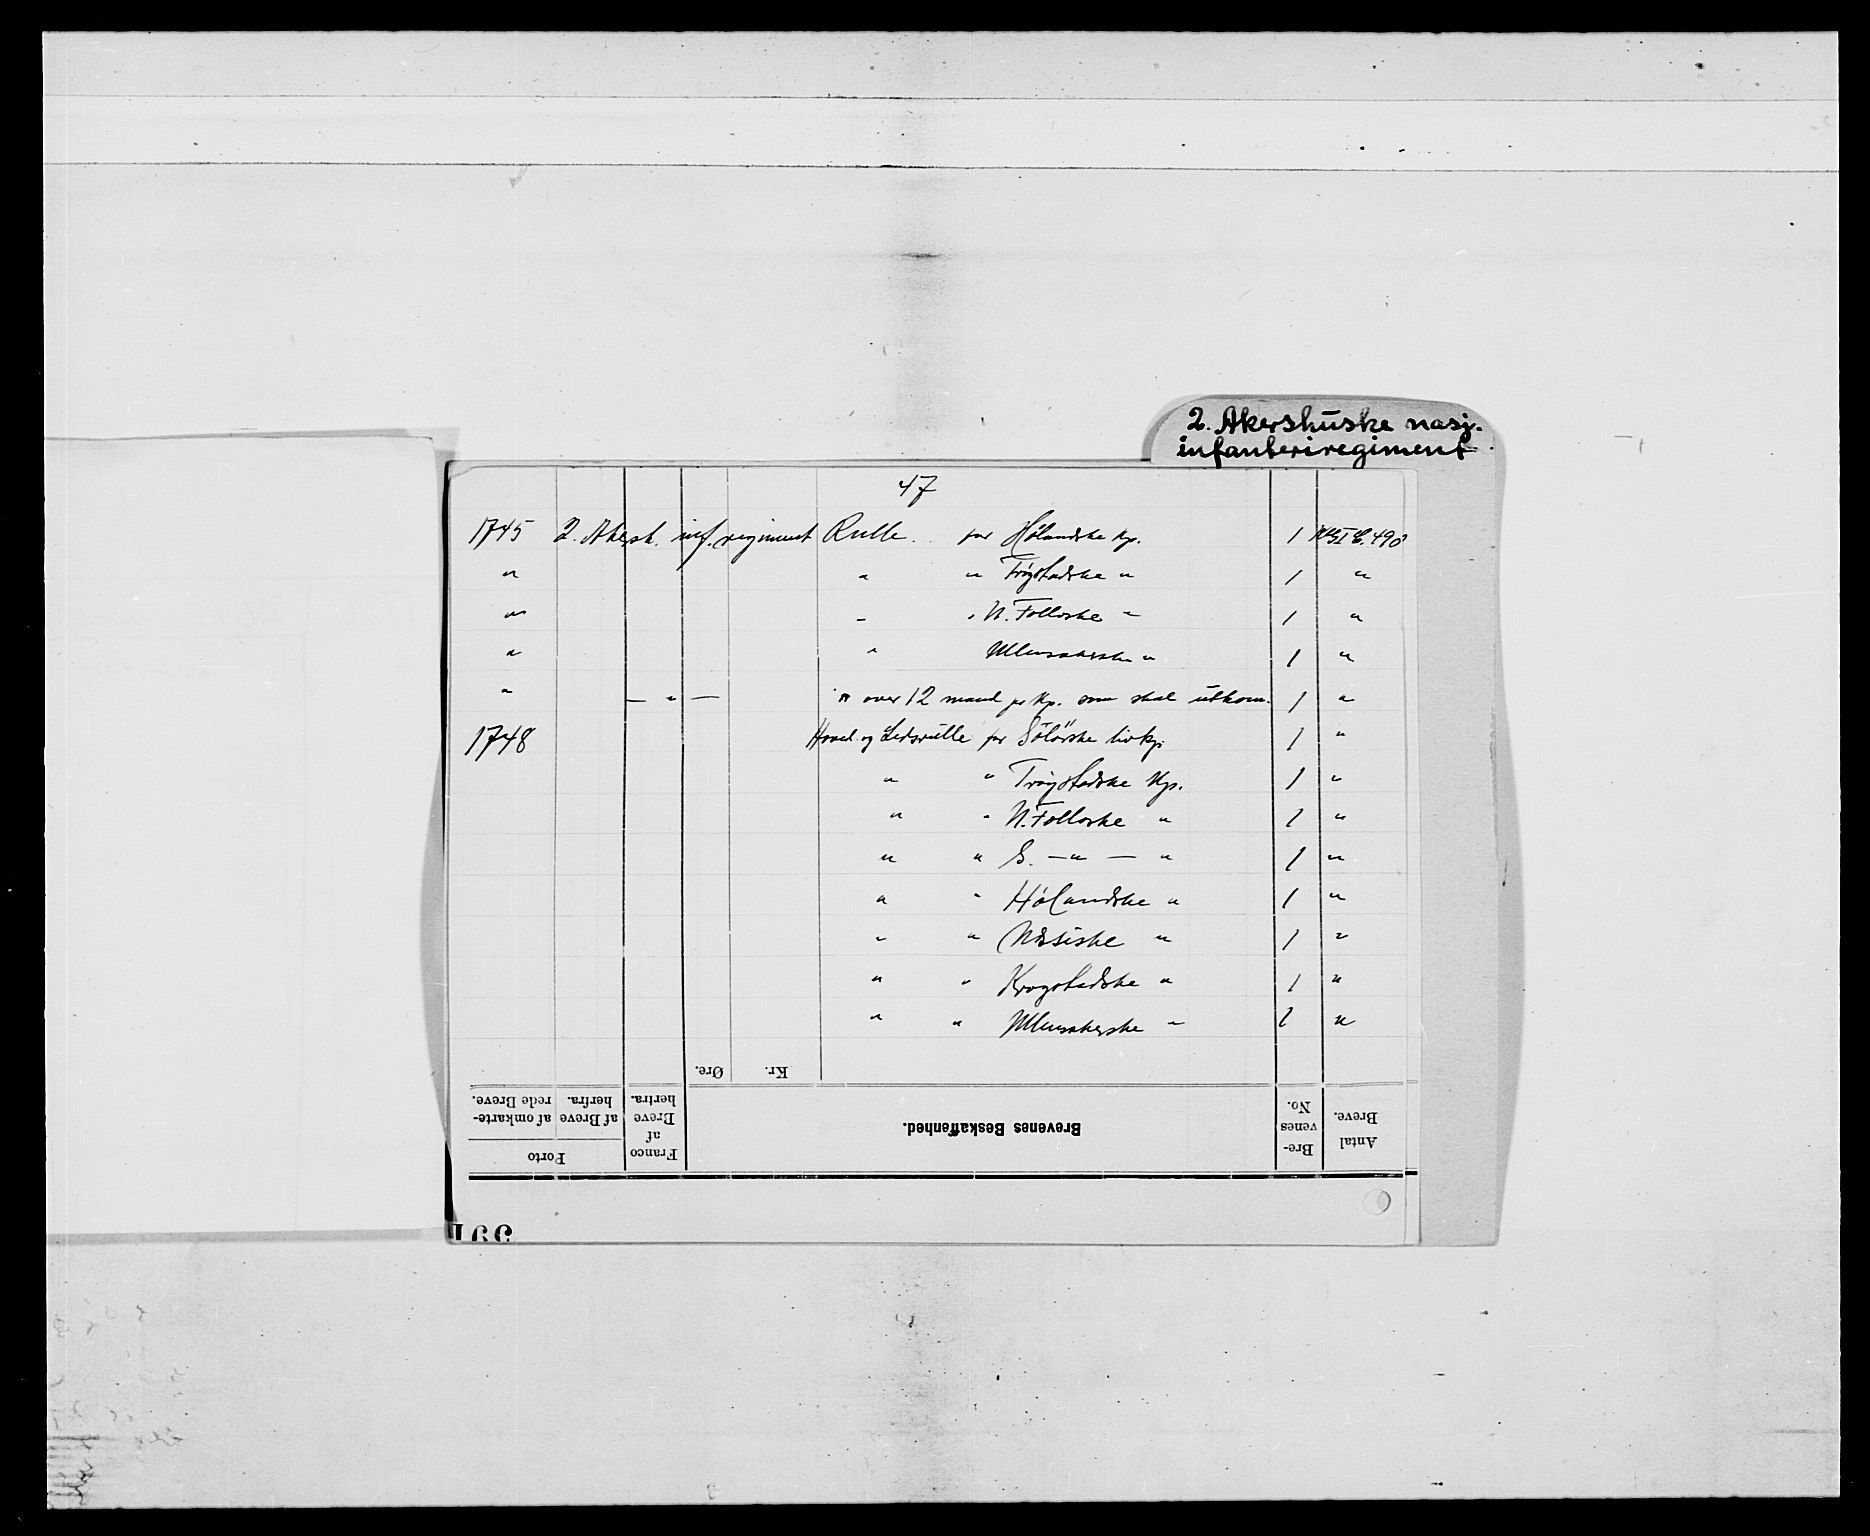 2. Akershuske nasj.
infanteriregiment
47
1745 2. Akersh. inf. regiment Rulle for Hølandske kp. 1
" " " Trøgstadske " 1 "
" " " N. Folloske " 1 "
" " Ullensakerske " 1 "
" — " — " over 12 mand pr kp. som skal utkom. 1 "
1748 Hoved og Ledsrulle for Solørske livkp. 1 "
" " Trøgstadske kp. 1 "
" " N. Folloske " 1 "
" " S. — " — " 1 "
" " Hølandske " 1 "
" " Nesiske " 1 "
" " Krogstadske " 1 "
" " Ullensakerske " 1 "
Øre. Kr.
Porto
af omkarte-
rede Breve.
af Breve
herfra.
Franco
af
Breve
herfra.
Brevenes Beskaffenhed.
Bre-
venes
No.
Antal
Breve.